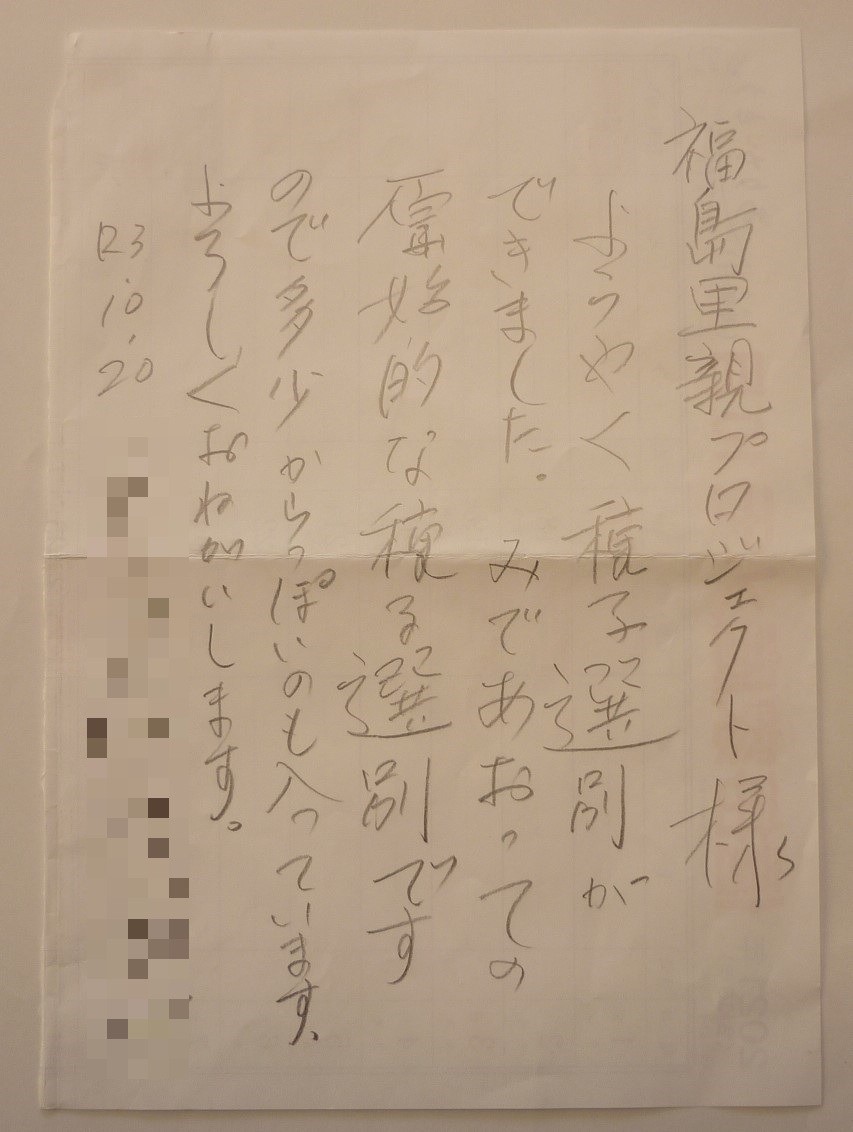 福島里親プロジェクト様
ようやく種子選別が
できました。みであおっての
原始的な種子選別です
ので多少からっぽいのも入っています、
よろしくおねがいします。
R3.10.20